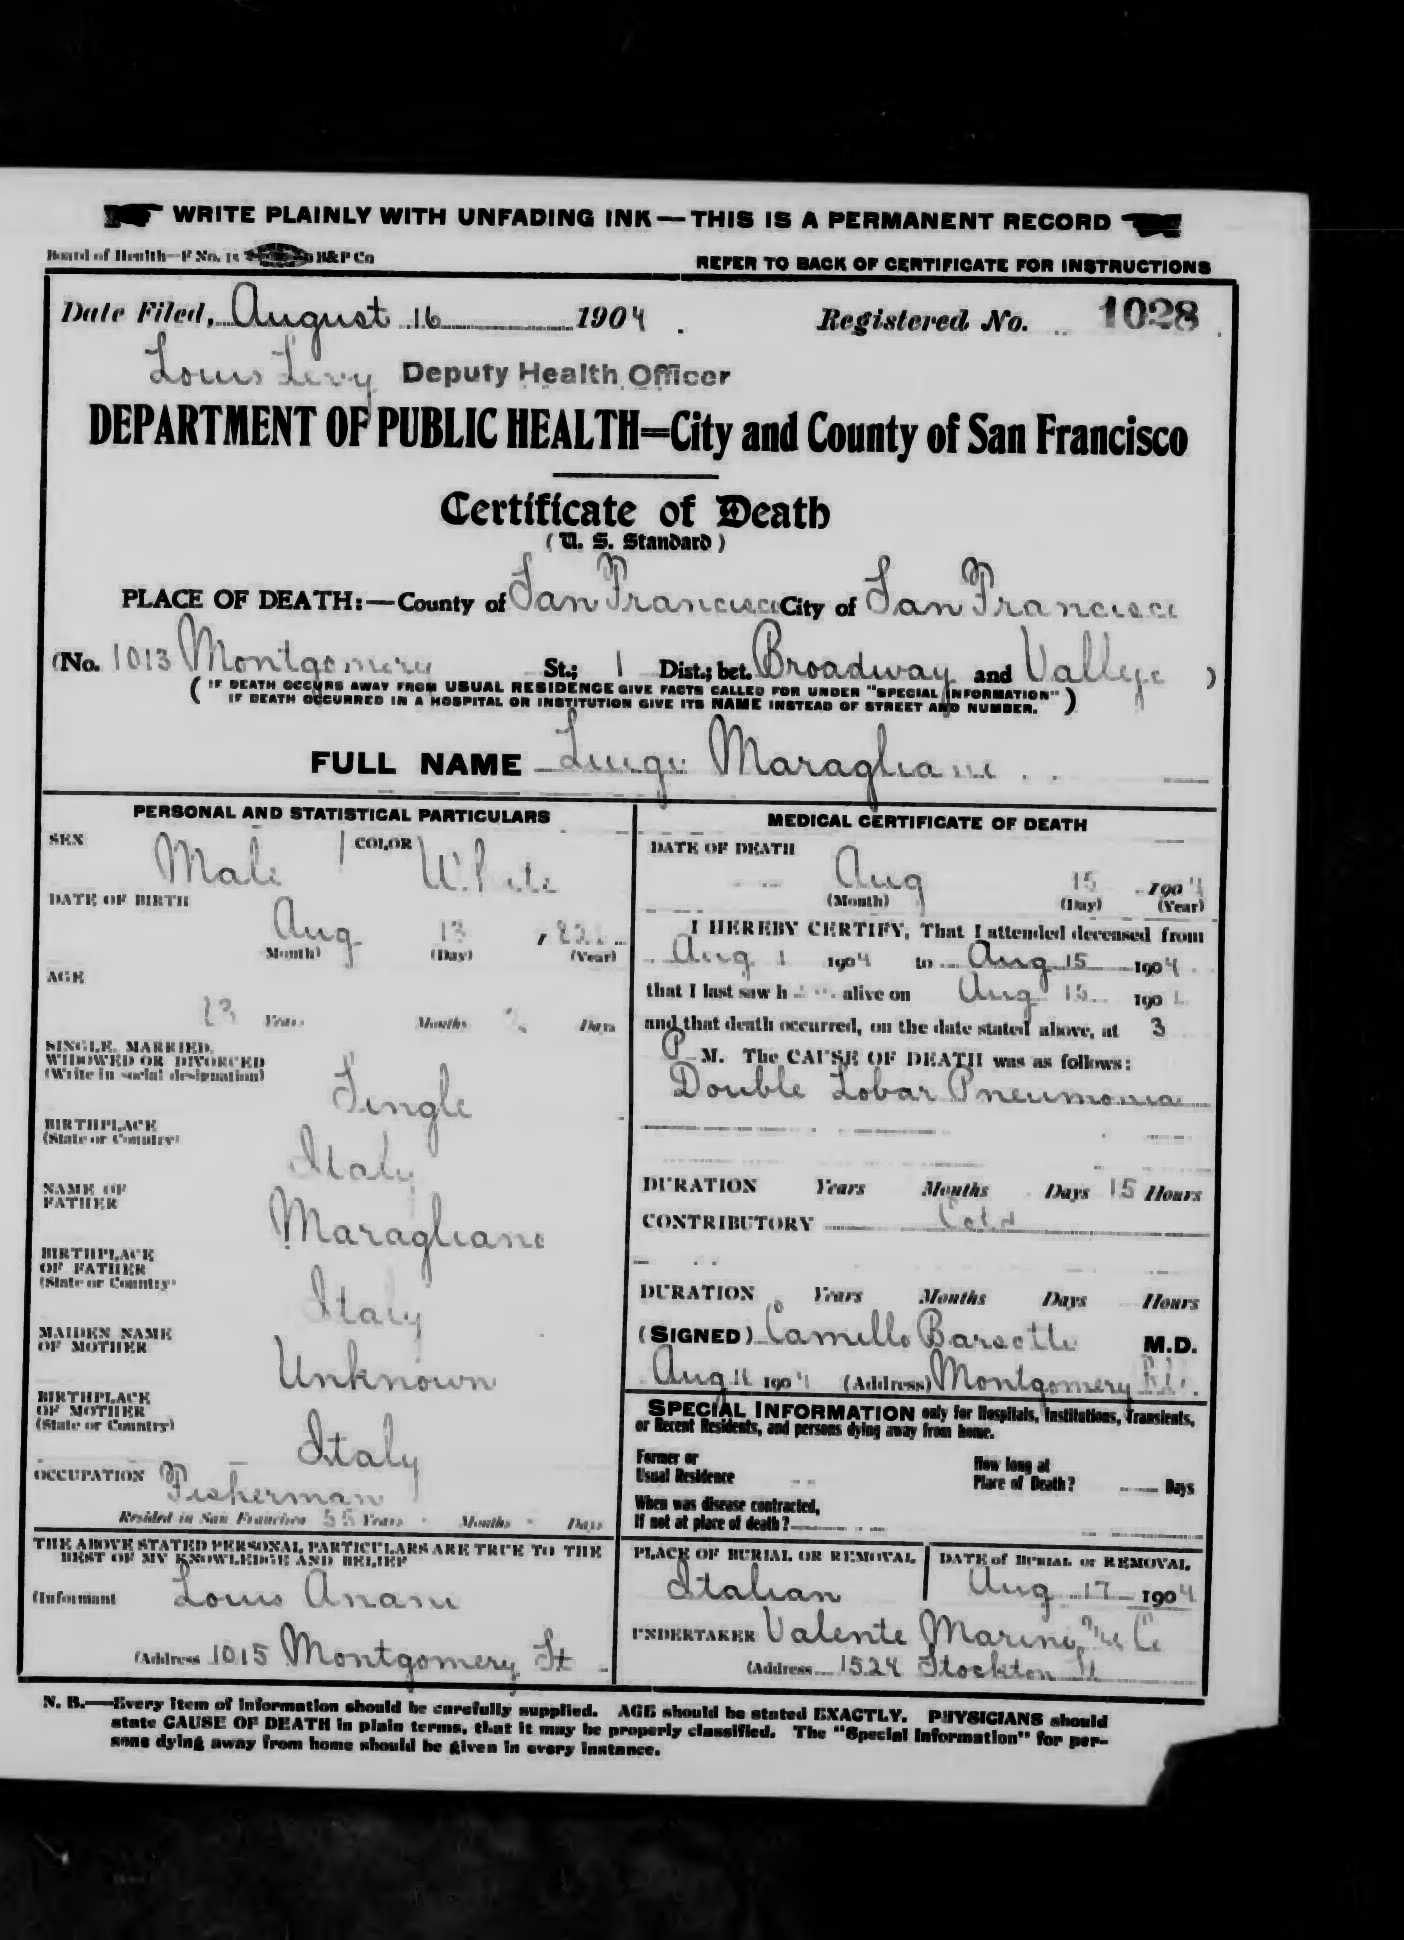 WRITE PLAINLY WITH UNFADING INK — THIS IS A PERMANENT RECORD
Board of Health—F No. 15 H&P Co
REFER TO BACK OF CERTIFICATE FOR INSTRUCTIONS
Date Filed, August 16 1904 Registered No. 1028
Louis Levy Deputy Health Officer
DEPARTMENT OF PUBLIC HEALTH=City and County of San Francisco
Certificate of Death
(U. S. Standard)
PLACE OF DEATH:—County of San Francisco City of San Francisco
(No. 1013 Montgomery St.; 1 Dist.; bet. Broadway and Vallejo )
( IF DEATH OCCURS AWAY FROM USUAL RESIDENCE GIVE FACTS CALLED FOR UNDER "SPECIAL INFORMATION"
IF DEATH OCCURRED IN A HOSPITAL OR INSTITUTION GIVE ITS NAME INSTEAD OF STREET AND NUMBER. )
FULL NAME Luigi Maragliano
PERSONAL AND STATISTICAL PARTICULARS
SEX Male COLOR White
DATE OF BIRTH
Aug 13
(Month) (Day) (Year)
AGE
Years Months Days
SINGLE, MARRIED,
WIDOWED OR DIVORCED
(Write in social designation)
Single
BIRTHPLACE
(State or Country)
Italy
NAME OF
FATHER
Maragliano
BIRTHPLACE
OF FATHER
(State or Country)
Italy
MAIDEN NAME
OF MOTHER
Unknown
BIRTHPLACE
OF MOTHER
(State or Country)
Italy
OCCUPATION Fisherman
Resided in San Francisco 55 Years Months Days
THE ABOVE STATED PERSONAL PARTICULARS ARE TRUE TO THE
BEST OF MY KNOWLEDGE AND BELIEF
(Informant Louis
(Address 1015 Montgomery St
MEDICAL CERTIFICATE OF DEATH
DATE OF DEATH
Aug 15 1904
(Month) (Day) (Year)
I HEREBY CERTIFY, That I attended deceased from
Aug 1 1904 to Aug 15 1904
that I last saw h alive on Aug 15 190
and that death occurred, on the date stated above, at 3
P M. The CAUSE OF DEATH was as follows:
Double Lobar Pneumonia
DURATION Years Months Days 15 Hours
CONTRIBUTORY Cold
DURATION Years Months Days Hours
(SIGNED) Camillo Barsotti M.D.
Aug 16 1904 (Address) Montgomery
SPECIAL INFORMATION only for Hospitals, Institutions, Transients,
or Recent Residents, and persons dying away from home.
Former or
Usual Residence
How long at
Place of Death? Days
When was disease contracted,
If not at place of death?
PLACE OF BURIAL OR REMOVAL
Italian
DATE of BURIAL or REMOVAL
Aug 17 1904
UNDERTAKER Valente Marini & Co
(Address 1524 Stockton St
N. B.—Every item of information should be carefully supplied. AGE should be stated EXACTLY. PHYSICIANS should
state CAUSE OF DEATH in plain terms, that it may be properly classified. The "Special Information" for per-
sons dying away from home should be given in every instance.